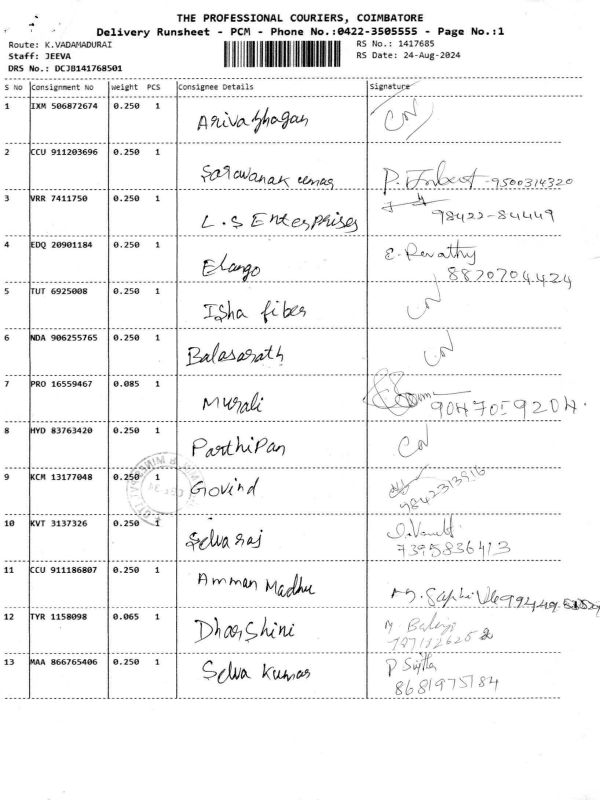 THE PROFESSIONAL COURIERS, COIMBATORE
Delivery Runsheet - PCM - Phone No.:0422-3505555 - Page No.:1
Route: K.VADAMADURAI RS No.: 1417685
Staff: JEEVA RS Date: 24-Aug-2024
DRS No.: DCJB141768501
S No Consignment No Weight PCS Consignee Details Signature
1 IXM 506872674 0.250 1 Arivazhagan CN
2 CCU 911203696 0.250 1 Saravanakumar P. -9500314320
3 VRR 7411750 0.250 1 L.S Enterprises 98422-84449
4 EDQ 20901184 0.250 1 Elango E. Revathy
8870704424
5 TUT 6925008 0.250 1 Isha fiber CN
6 NDA 906255765 0.250 1 Balasarath CN
7 PRO 16559467 0.085 1 Murali 9047059204.
8 HYD 83763420 0.250 1 Parthipan CN
9 KCM 13177048 0.250 1 Govind 9842313916
10 KVT 3137326 0.250 1 Selvaraj
7395836413
11 CCU 911186807 0.250 1 Amman Madhu
12 TYR 1158098 0.065 1 Dharshini M. Balaji
13 MAA 866765406 0.250 1 Selva Kumar P Sujitha
8681975184